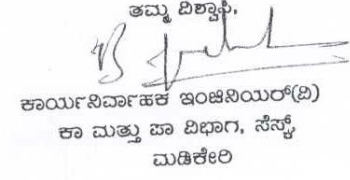 ತಮ್ಮ ವಿಶ್ವಾಸಿ,
ಕಾರ್ಯನಿರ್ವಾಹಕ ಇಂಜಿನಿಯರ್(ವಿ)
ಕಾ ಮತ್ತು ಪಾ ವಿಭಾಗ, ಸೆಸ್ಕ್
ಮಡಿಕೇರಿ